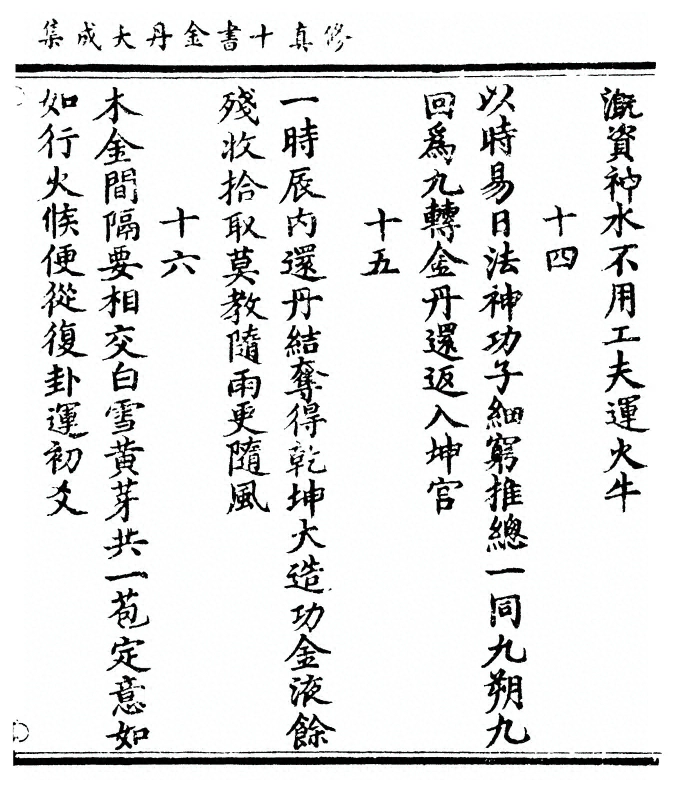 修真十書金丹大成集
溉資神水不用工夫運火牛
十四
以時易日法神功子細窮推總一同九朔九
回爲九轉金丹還返入坤宫
十五
一時辰内還丹結奪得乾坤大造功金液餘
殘收拾取莫教隨雨更隨風
十六
木金間隔要相交白雪黃芽共一苞定意如
如行火候便從復卦運初爻